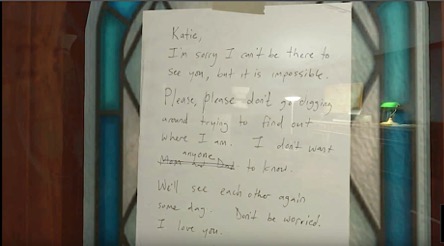 Katie,
I'm sorry I can't be there to
see you, but it is impossible.
Please, please don't go digging
around trying to find out
where I am. I don't want
anyone
Mom and Dad to know.
We'll see each other again
some day. Don't be worried.
I love you.